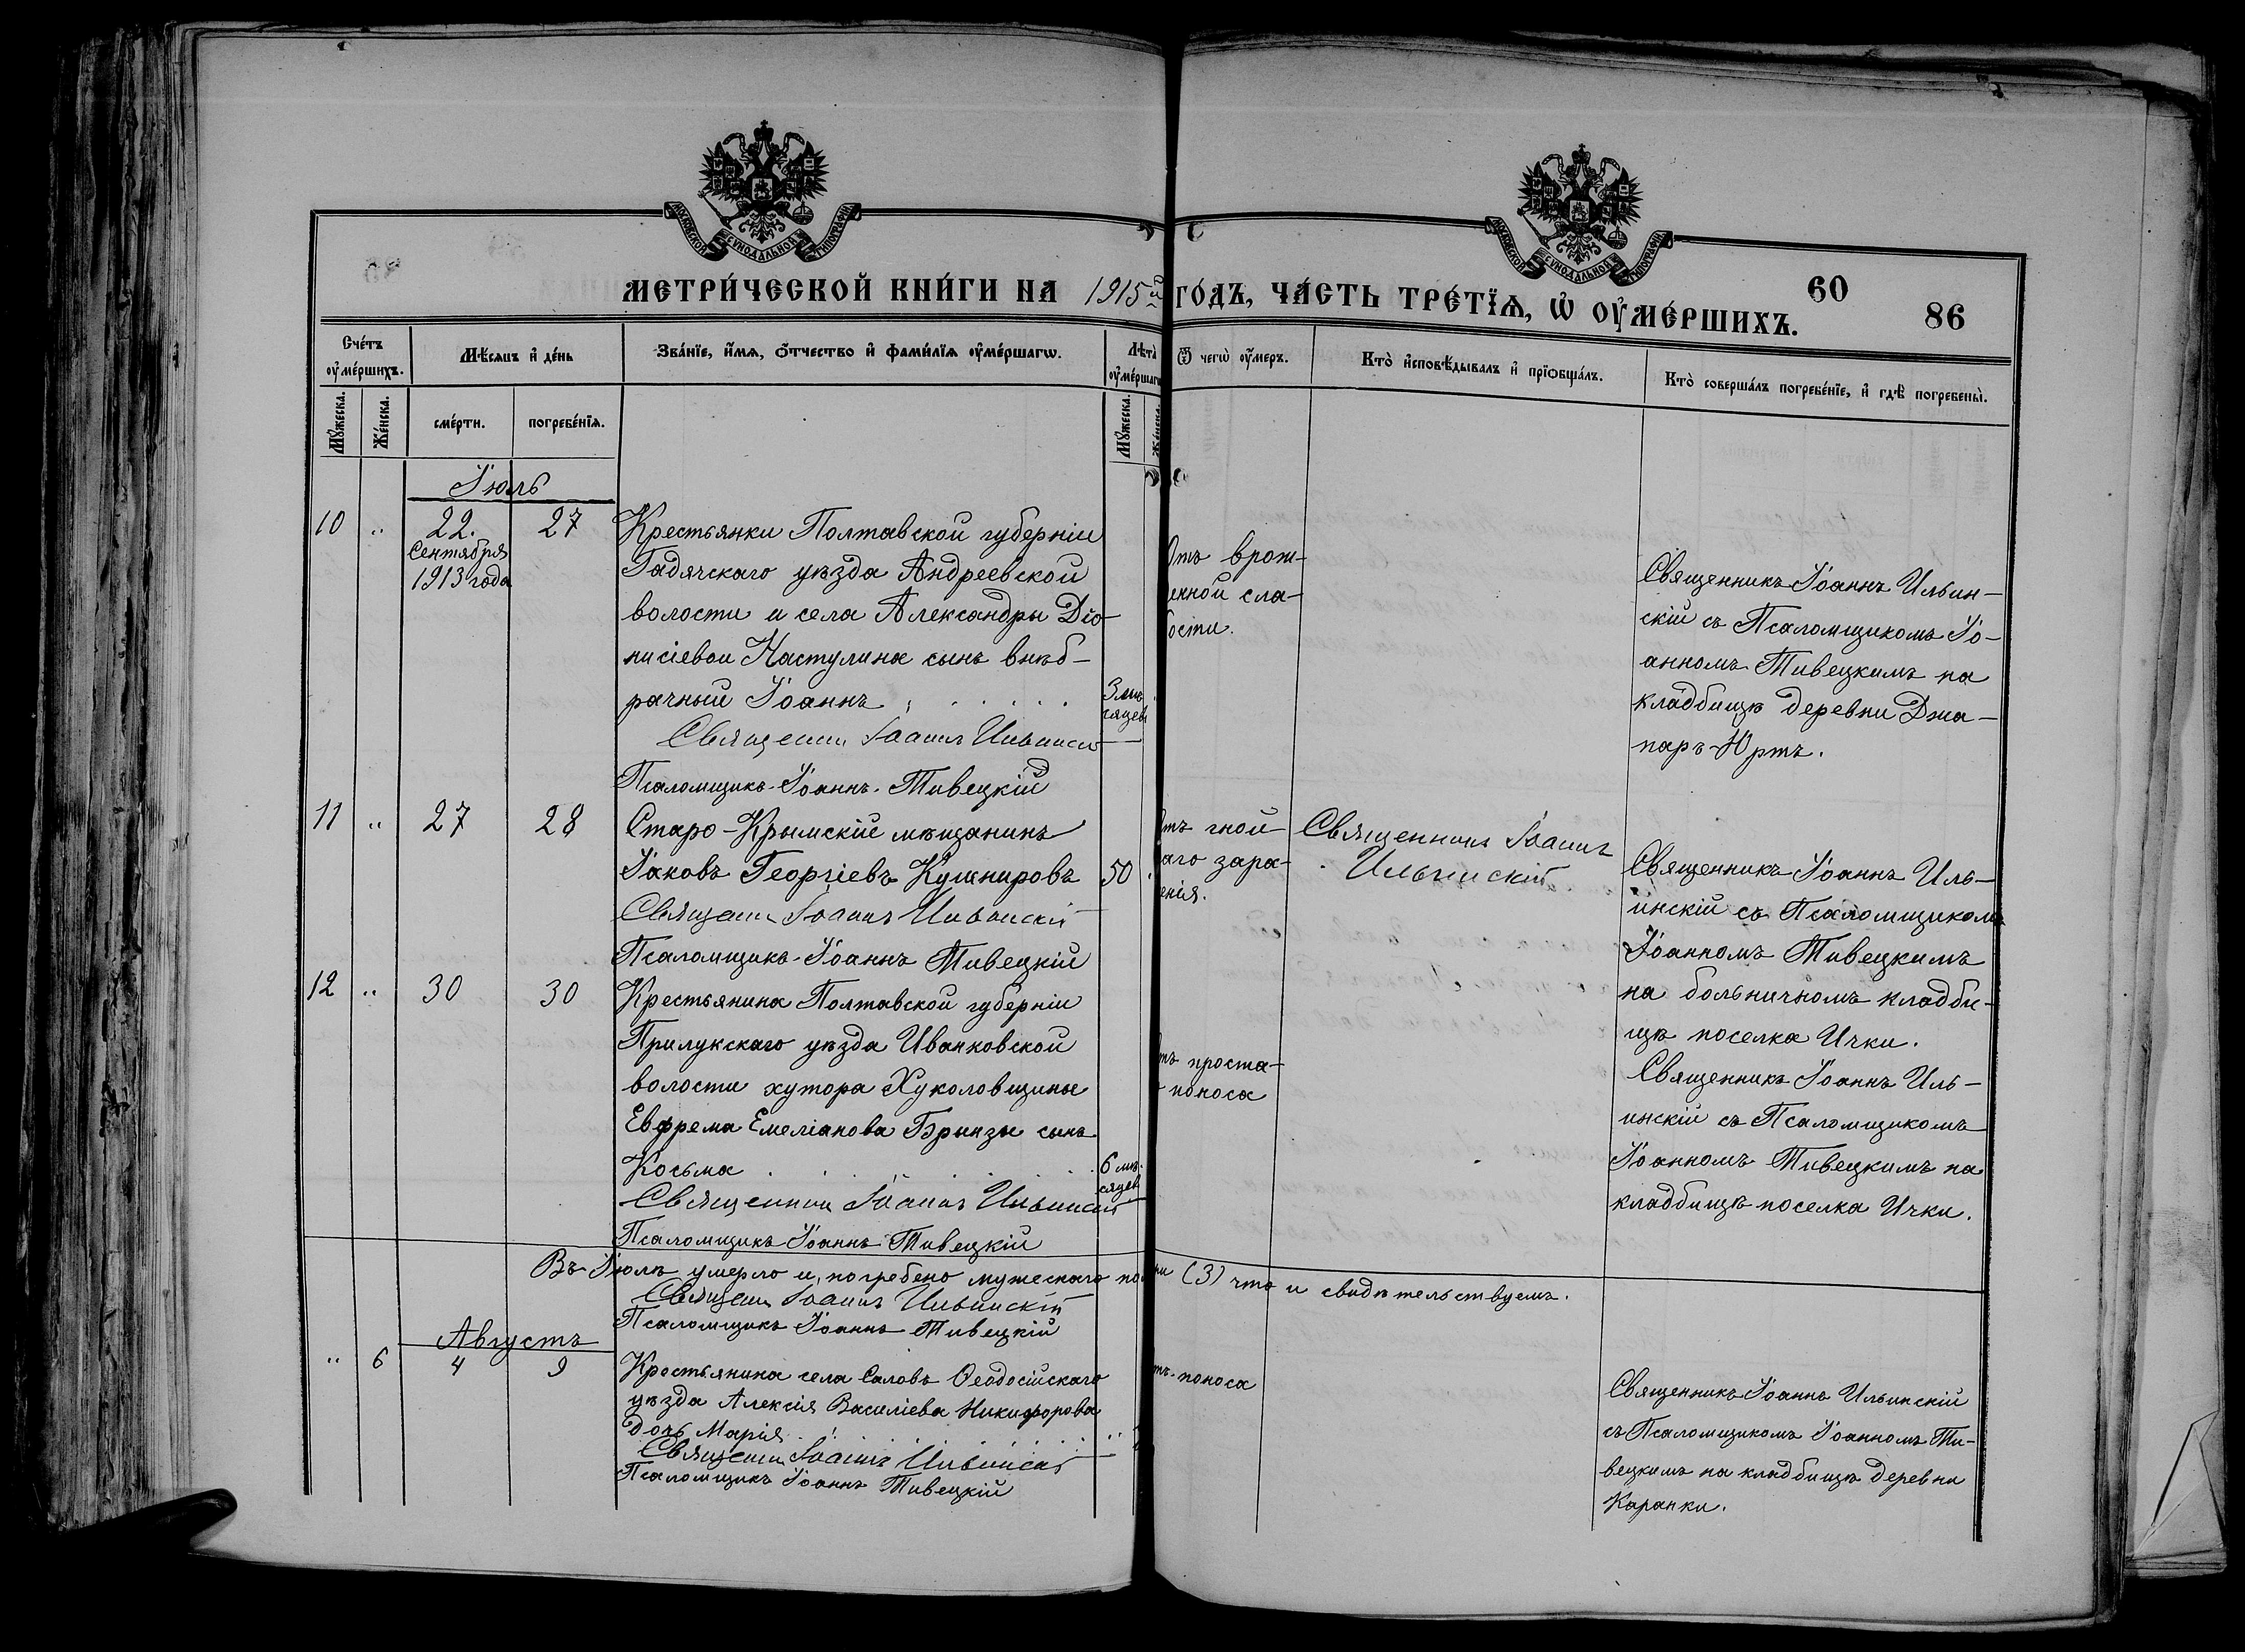 МОСКОВСКОЙ СѴНОДАЛЬНОЙ ТИПОГРАФІИ
МОСКОВСКОЙ СѴНОДАЛЬНОЙ ТИПОГРАФІИ
МЕТРИ́ЧЕСКОЙ КНИ́ГИ НА 1915й ГО́ДЪ, ЧА́СТЬ ТРЕ́ТЇѦ, Ѡ҆ ОУ҆МЕ́РШИХЪ.
60
86
Сче́тъ оу҆ме́ршихъ.
Мѣ́сѧцъ и҆ де́нь
Зва́нїе, и҆́мѧ, ѻ҆́тчество и҆ фами́лїѧ оу҆ме́ршагѡ.
Лѣ̀та оу҆ме́ршагѡ
Ѿ чегѡ̀ оу҆́меръ.
Кто̀ и҆сповѣ́дывалъ и҆ прїѡбща́лъ.
Кто̀ соверша́лъ погребе́нїе, и҆ гдѣ̀ погребены̀.
Мꙋ́жеска.
Же́нска.
сме́рти.
погребе́нїѧ.
Мꙋ́жеска.
Же́нска.
Іюль
10 " 22. 27
Сентября
1913 года
Крестьянки Полтавской губерніи
Гадячскаго уѣзда Андреевской
волости и села Александры Діо-
нисіевой Настулина сынъ внѣб-
рачный Іоаннъ
3 мѣ-
сяцев
Священник Іоаннъ Ильинскій
Псаломщикъ Іоаннъ Тивецкій
Отъ врож-
енной сла-
ости.
Священникъ Іоаннъ Ильин-
скій съ Псаломщикомъ Іо-
анномъ Тивецкимъ на
кладбищѣ деревни Джа-
паръ-Юртъ.
11 " 27 28
Старо-Крымскій мѣщанинъ
Іаковъ Георгіевъ Кушнировъ 50
Священник Іоаннъ Ильинскій
Псаломщикъ Іоаннъ Тивецкій
тъ гной-
аго зара-
енія.
Священникъ Іоаннъ
Ильинскій
Священникъ Іоаннъ Иль-
инскій съ Псаломщикомъ
Іоанномъ Тивецкимъ
на больничномъ кладби-
щѣ поселка Ички.
12 " 30 30
Крестьянина Полтавской губерніи
Прилукскаго уѣзда Иванковской
волости хутора Хуколовщины
Евфрема Емеліанова Брынзы сынъ
Косьма
6 мѣ-
сяцев
Священник Іоаннъ Ильинскій
Псаломщикъ Іоаннъ Тивецкій
тъ проста-
поноса
Священникъ Іоаннъ Иль-
инскій съ Псаломщикомъ
Іоанномъ Тивецкимъ на
кладбищѣ поселка Ички.
Въ Іюлѣ умерло и погребено мужескаго по ри (3) что и свидѣтельствуемъ.
Священ Іоаннъ Ильинскій
Псаломщикъ Іоаннъ Тивецкій
Августъ
" 6 4 9
Крестьянина села Саловъ Ѳеодосійскаго
уѣзда Алексія Василіева Никифорова
дочь Марія
Священник Іоаннъ Ильинскій
Псаломщикъ Іоаннъ Тивецкій
тъ поноса
Священникъ Іоаннъ Ильинскій
съ Псаломщикомъ Іоанномъ Ти-
вецкимъ на кладбищѣ деревни
Каранки.